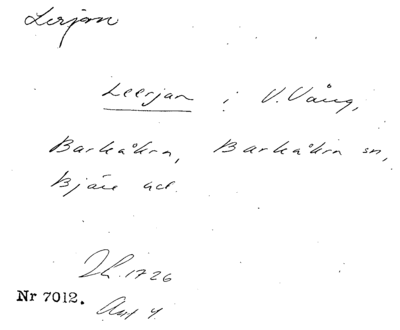 Lerjan
Leerjan i V. Vång,
Barkåkra, Barkåkra sn,
Bjäre hd.
Lh. 1726
Nr 7012. Akt 4